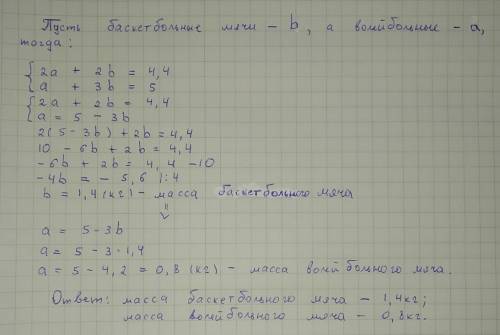 Пусть баскетбольные мячи - b, а волейбольные - a,
тогда:
2a + 2b = 4,4
a + 3b = 5
2a + 2b = 4,4
a = 5 - 3b
2(5 - 3b) + 2b = 4,4
10 - 6b + 2b = 4,4
-6b + 2b = 4,4 -10
-4b = - 5,6 |:4
b = 1,4 (кг) - масса баскетбольного мяча
⇓
a = 5 - 3b
a = 5 - 3 · 1,4
a = 5 - 4,2 = 0,8 (кг) - масса волейбольного мяча.
Ответ: масса баскетбольного мяча - 1,4 кг;
масса волейбольного мяча - 0,8 кг.